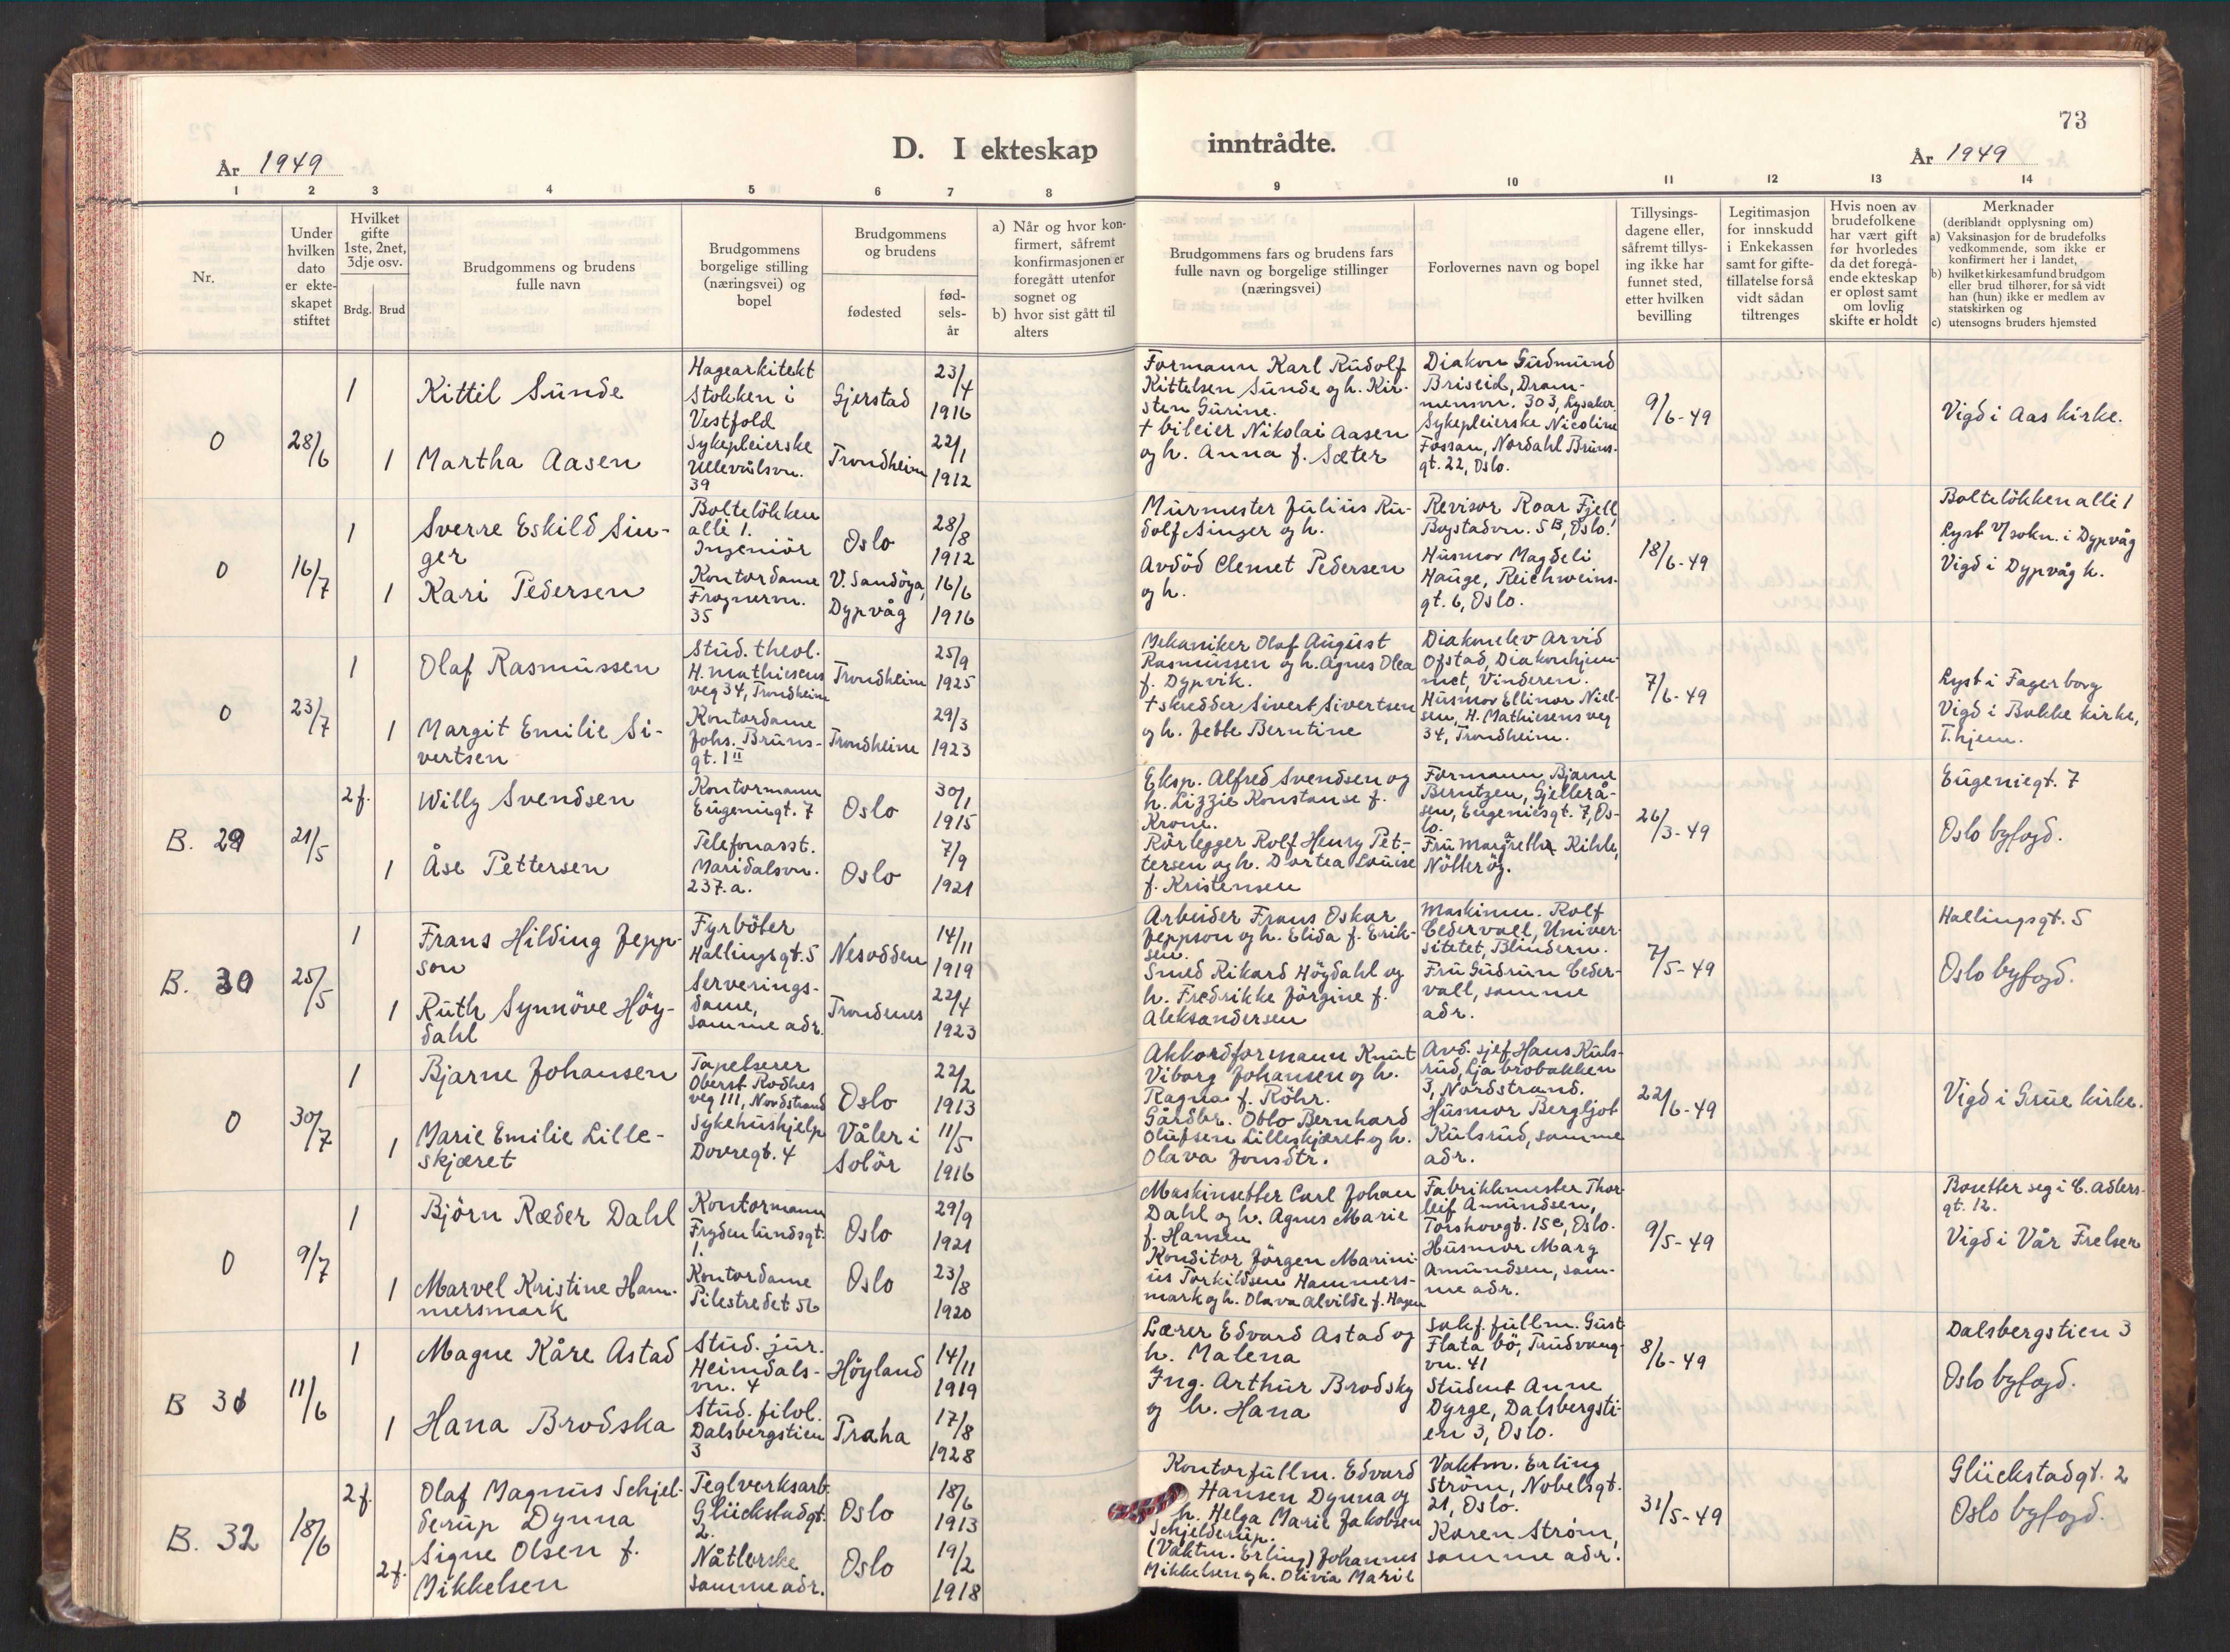 73
D. I ekteskap inntrådte.
År 1949
År 1949
1 2 3 4 5 6 7 8 9 10 11 12 13 14
Nr.
Under
hvilken
dato
er ekte-
skapet
stiftet
Hvilket
gifte
1ste, 2net,
3dje osv.
Brdg. Brud
Brudgommens og brudens
fulle navn
Brudgommens
borgelige stilling
(næringsvei) og
bopel
Brudgommens
og brudens
fødested
fød-
sels-
år
a) Når og hvor kon-
firmert, såfremt
konfirmasjonen er
foregått utenfor
sognet og
b) hvor sist gått til
alters
Brudgommens fars og brudens fars
fulle navn og borgelige stillinger
(næringsvei)
Forlovernes navn og bopel
Tillysings-
dagene eller,
såfremt tillys-
ing ikke har
funnet sted,
etter hvilken
bevilling
Legitimasjon
for innskudd
i Enkekassen
samt for gifte-
tillatelse for så
vidt sådan
tiltrenges
Hvis noen av
brudefolkene
har vært gift
før hvorledes
da det foregå-
ende ekteskap
er opløst samt
om lovlig
skifte er holdt
Merknader
(deriblandt opplysning om)
a) Vaksinasjon for de brudefolks
vedkommende, som ikke er
konfirmert her i landet,
b) hvilket kirkesamfund brudgom
eller brud tilhører, for så vidt
han (hun) ikke er medlem av
statskirken og
c) utensogns bruders hjemsted
0
28/6
1
Kittil Sunde
Hagearkitekt
Stokken i
Vestfold
Gjerstad
23/4
1916
1
Martha Aasen
Sykepleierske
Ullevålsvn.
39
Trondheim
22/1
1912
Formann Karl Rudolf
Kittelsen Sunde og h. Kir-
sten Gurine.
+ bileier Nikolai Aasen
og h. Anna f. Sæter
Diakon Gudmund
Briseid, Dram-
mensvn. 303, Lysaker.
Sykepleierske Nicoline
Fossan, Nordahl Bruns-
gt. 22, Oslo.
9/6-49
Vigd i Aas kirke.
0
16/7
1
Sverre Eskild Sin-
ger
Bolteløkken
alle 1.
Ingeniör
Oslo
28/8
1912
1
Kari Pedersen
Kontordame
Frognervn.
35
V. Sandöya,
Dypvåg
16/6
1916
Murmester Julius Ru-
dolf Singer og h.
Avdöd Clemet Pedersen
og h.
Revisor Roar Fjell,
Bogstadvn. 5B, Oslo.
Husmor Magdeli
Hauge, Reichweins-
gt. 6, Oslo.
18/6-49
Bolteløkken alle 1
Lyst i sokn. i Dypvåg
Vigd i Dypvåg k.
0
23/7
1
Olaf Rasmussen
Stud. theol.
H. Mathiesens
veg 34, Trondheim
Trondheim
25/9
1925
1
Margit Emilie Si-
vertsen
Kontordame
Johs. Bruns-
gt. 1 II
Trondheim
29/3
1923
Mekaniker Olaf August
Rasmussen og h. Agnes Olea
f. Dypvik.
+ skredder Sivert Sivertsen
og h. Jette Berntine
Diakonelev Arvid
Ofstad, Diakonhjem-
met, Vinderen.
Husmor Ellinor Niel-
sen, H. Mathiesens veg
34, Trondheim.
7/6-49
Lyst i Fagerborg
Vigd i Bakke kirke,
T.hjem.
B. 29
21/5
2 f.
Willy Svendsen
Kontormann
Eugenigt. 7
Oslo
30/1
1915
1
Åse Pettersen
Telefonasst.
Maridalsvn.
237.a.
Oslo
7/9
1921
Eksp. Alfred Svendsen og
h. Lizzie Konstanse f.
Krone.
Rörlegger Rolf Henry Pet-
tersen og h. Dortea Louise
f. Kristensen
Formann Bjarne
Berntzen, Gjellerå-
sen, Eugeniesgt. 7, Os-
lo.
Fru Margretha Kihle,
Nötteröy.
26/3-49
Eugeniegt. 7
Oslo byfogd.
B. 30
25/5
1
Frans Hilding Jepp-
son
Fyrböter
Hallingsgt. 5
Nesodden
14/11
1919
1
Ruth Synnöve Höy-
dahl
Serverings-
dame,
samme adr.
Trondenes
22/4
1923
Arbeider Frans Oskar
Jeppson og h. Elida f. Erik-
sen.
Smed Rikard Högdahl og
h. Fredrikke Jörgine f.
Aleksandersen
Maskinm. Rolf
Cedervall, Univer-
sitetet, Blindern.
Fru Gudrun Ceder-
vall, samme
adr.
7/5-49
Hallingsgt. 5
Oslo byfogd.
0
30/7
1
Bjarne Johansen
Tapetserer
Oberst Rodhes
veg 111, Nordstrand
Oslo
22/2
1913
1
Marie Emilie Lille-
skjæret
Sykehushjelp
Dovregt. 4
Våler i
Solör
11/5
1916
Akkordformann Knut
Viborg Johansen og h.
Ragna f. Röhr.
Gårdbr. Otto Bernhard
Olufsen Lilleskjæret og h.
Olava Jonsdtr.
Avd. sjef Hans Kuls-
rud, Ljabrobakken
3, Nordstrand.
Husmor Bergljot
Kulsrud, samme
adr.
22/6-49
Vigd i Grue kirke.
0
9/7
1
Björn Ræder Dahl
Kontormann
Frydenlundsgt.
1.
Oslo
29/9
1921
1
Marvel Kristine Ham-
mersmark
Kontordame
Pilestredet 56
Oslo
23/8
1920
Maskinsetter Carl Johan
Dahl og h. Agnes Marie
f. Hansen
Konditor Jörgen Marini-
us Torkildsen Hammers-
mark og h. Olava Alvilde f. Hagen
Fabrikkmester Thor-
leif Amundsen,
Torshovgt. 15c, Oslo.
Husmor Marg
Amundsen, sam-
me adr.
9/5-49
Bosetter seg i C. Adlers-
gt. 12.
Vigd i Vår Frelser
B 31
11/6
1
Magne Kåre Astad
Stud. jur.
Heimdals-
vn. 4
Höyland
14/11
1919
1
Hana Brodska
Stud. filol.
Dalsbergstien
3
Praha
17/8
1928
Lærer Edvard Astad og
h. Malena
Ing. Arthur Brodsky
og h. Hana
Sakf. fullm. Gust
Flata bö, Trudvang-
vn. 41
Student Anne
Dyrge, Dalsbergsti-
en 3, Oslo.
8/6-49
Dalsbergstien 3
Oslo byfogd.
B. 32
18/6
2 f.
Olaf Magnus Schjel-
derup Dynna
Teglverksarb.
Glückstadgt.
2.
Oslo
18/6
1913
2 f.
Signe Olsen f.
Mikkelsen
Nåtlerske
samme adr.
Oslo
19/2
1918
Kontorfullm. Edvard
Hansen Dynna og
h. Helga Marie Jakobsen
Schjelderup.
(Vaktm. Erling) Johannes
Mikkelsen og h. Olivia Marie
Vaktm. Erling
Ström, Nobelsgt.
21, Oslo.
Karen Ström,
samme adr.
31/5-49
Glückstadgt. 2
Oslo byfogd.